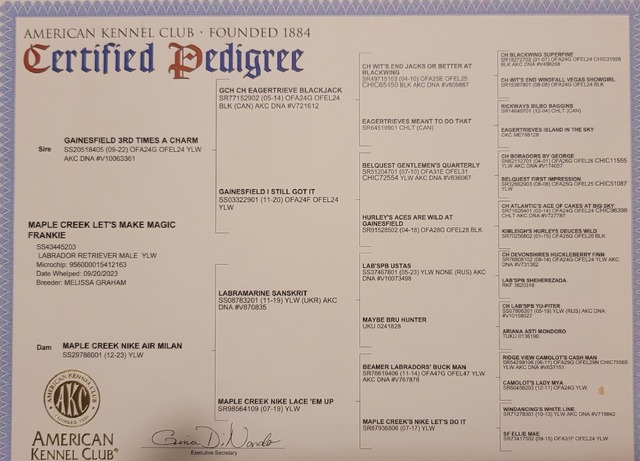 AMERICAN KENNEL CLUB · FOUNDED 1884
Certified Pedigree
Sire
GAINESFIELD 3RD TIMES A CHARM
SS20518405 (09-22) OFA24G OFEL24 YLW
AKC DNA #V10063361
MAPLE CREEK LET'S MAKE MAGIC
FRANKIE
SS43445203
LABRADOR RETRIEVER MALE YLW
Microchip: 956000015412163
Date Whelped: 09/20/2023
Breeder: MELISSA GRAHAM
Dam
MAPLE CREEK NIKE AIR MILAN
SS29786001 (12-23) YLW
GCH CH EAGERTRIEVE BLACKJACK
SR77152902 (05-14) OFA24G OFEL24
BLK (CAN) AKC DNA #V721612
GAINESFIELD I STILL GOT IT
SS03322901 (11-20) OFA24F OFEL24
YLW
LABRAMARINE SANSKRIT
SS08783201 (11-19) YLW (UKR) AKC
DNA #V870835
MAPLE CREEK NIKE LACE 'EM UP
SR98564109 (07-19) YLW
CH WIT'S END JACKS OR BETTER AT
BLACKWING
SR49715103 (04-10) OFA25E OFEL25
CHIC65450 BLK AKC DNA #V609867
EAGERTRIEVES MEANT TO DO THAT
SR64519901 CHLT (CAN)
BELQUEST GENTLEMEN'S QUARTERLY
SR51204701 (07-10) OFA31E OFEL31
CHIC72554 YLW AKC DNA #V636067
HURLEY'S ACES ARE WILD AT
GAINESFIELD
SR91528502 (04-18) OFA28G OFEL28 BLK
LAB'SPB USTAS
SS37467801 (05-23) YLW NONE (RUS) AKC
DNA #V10073498
MAYBE BRU HUNTER
UKU 0241828
BEAMER LABRADORS' BUCK MAN
SR78619406 (11-14) OFA47G OFEL47 YLW
AKC DNA #V767878
MAPLE CREEK'S NIKE LET'S DO IT
SR87936806 (07-17) YLW
CH BLACKWING SUPERFINE
BLK AKC DNA #V498268
CH WIT'S END WINDFALL VEGAS SHOWGIRL
SR15387801 (08-06) OFA24G OFEL24 BLK
RICKWAYS BILBO BAGGINS
SR14649701 (12-04) CHLT (CAN)
EAGERTRIEVES ISLAND IN THE SKY
CKC ME788128
CH BORADORS BY GEORGE
YLW AKC DNA #V174057
BELQUEST FIRST IMPRESSION
YLW
CH ATLANTIC'S ACE OF CAKES AT BIG SKY
CHLT AKC DNA #V727787
KIMLEIGH'S HURLEYS DEUCES WILD
SR70256802 (01-15) OFA26G OFEL26 BLK
CH DEVONSHIRES HUCKLEBERRY FINN
DNA #V731362
LAB'SPB SHEHEREZADA
RKF 3620318
CH LAB'SPB YU-PITER
SS07806301 (05-19) YLW (RUS) AKC DNA
#V10158027
ARIANA ASTI MONDORO
TUKU 0136190
RIDGE VIEW CAMOLOT'S CASH MAN
YLW AKC DNA #V637151
CAMOLOT'S LADY MYA
SR60456203 (12-11) OFA24G YLW
WINDANCING'S WHITE LINE
SR71278301 (10-13) YLW AKC DNA #V719842
SF ELLIE MAE
SR73417502 (09-15) OFA31F OFEL24 YLW
AMERICAN KENNEL CLUB
AKC
FOUNDED 1884
AMERICAN
KENNEL CLUB®
Gina DiNardo
Executive Secretary